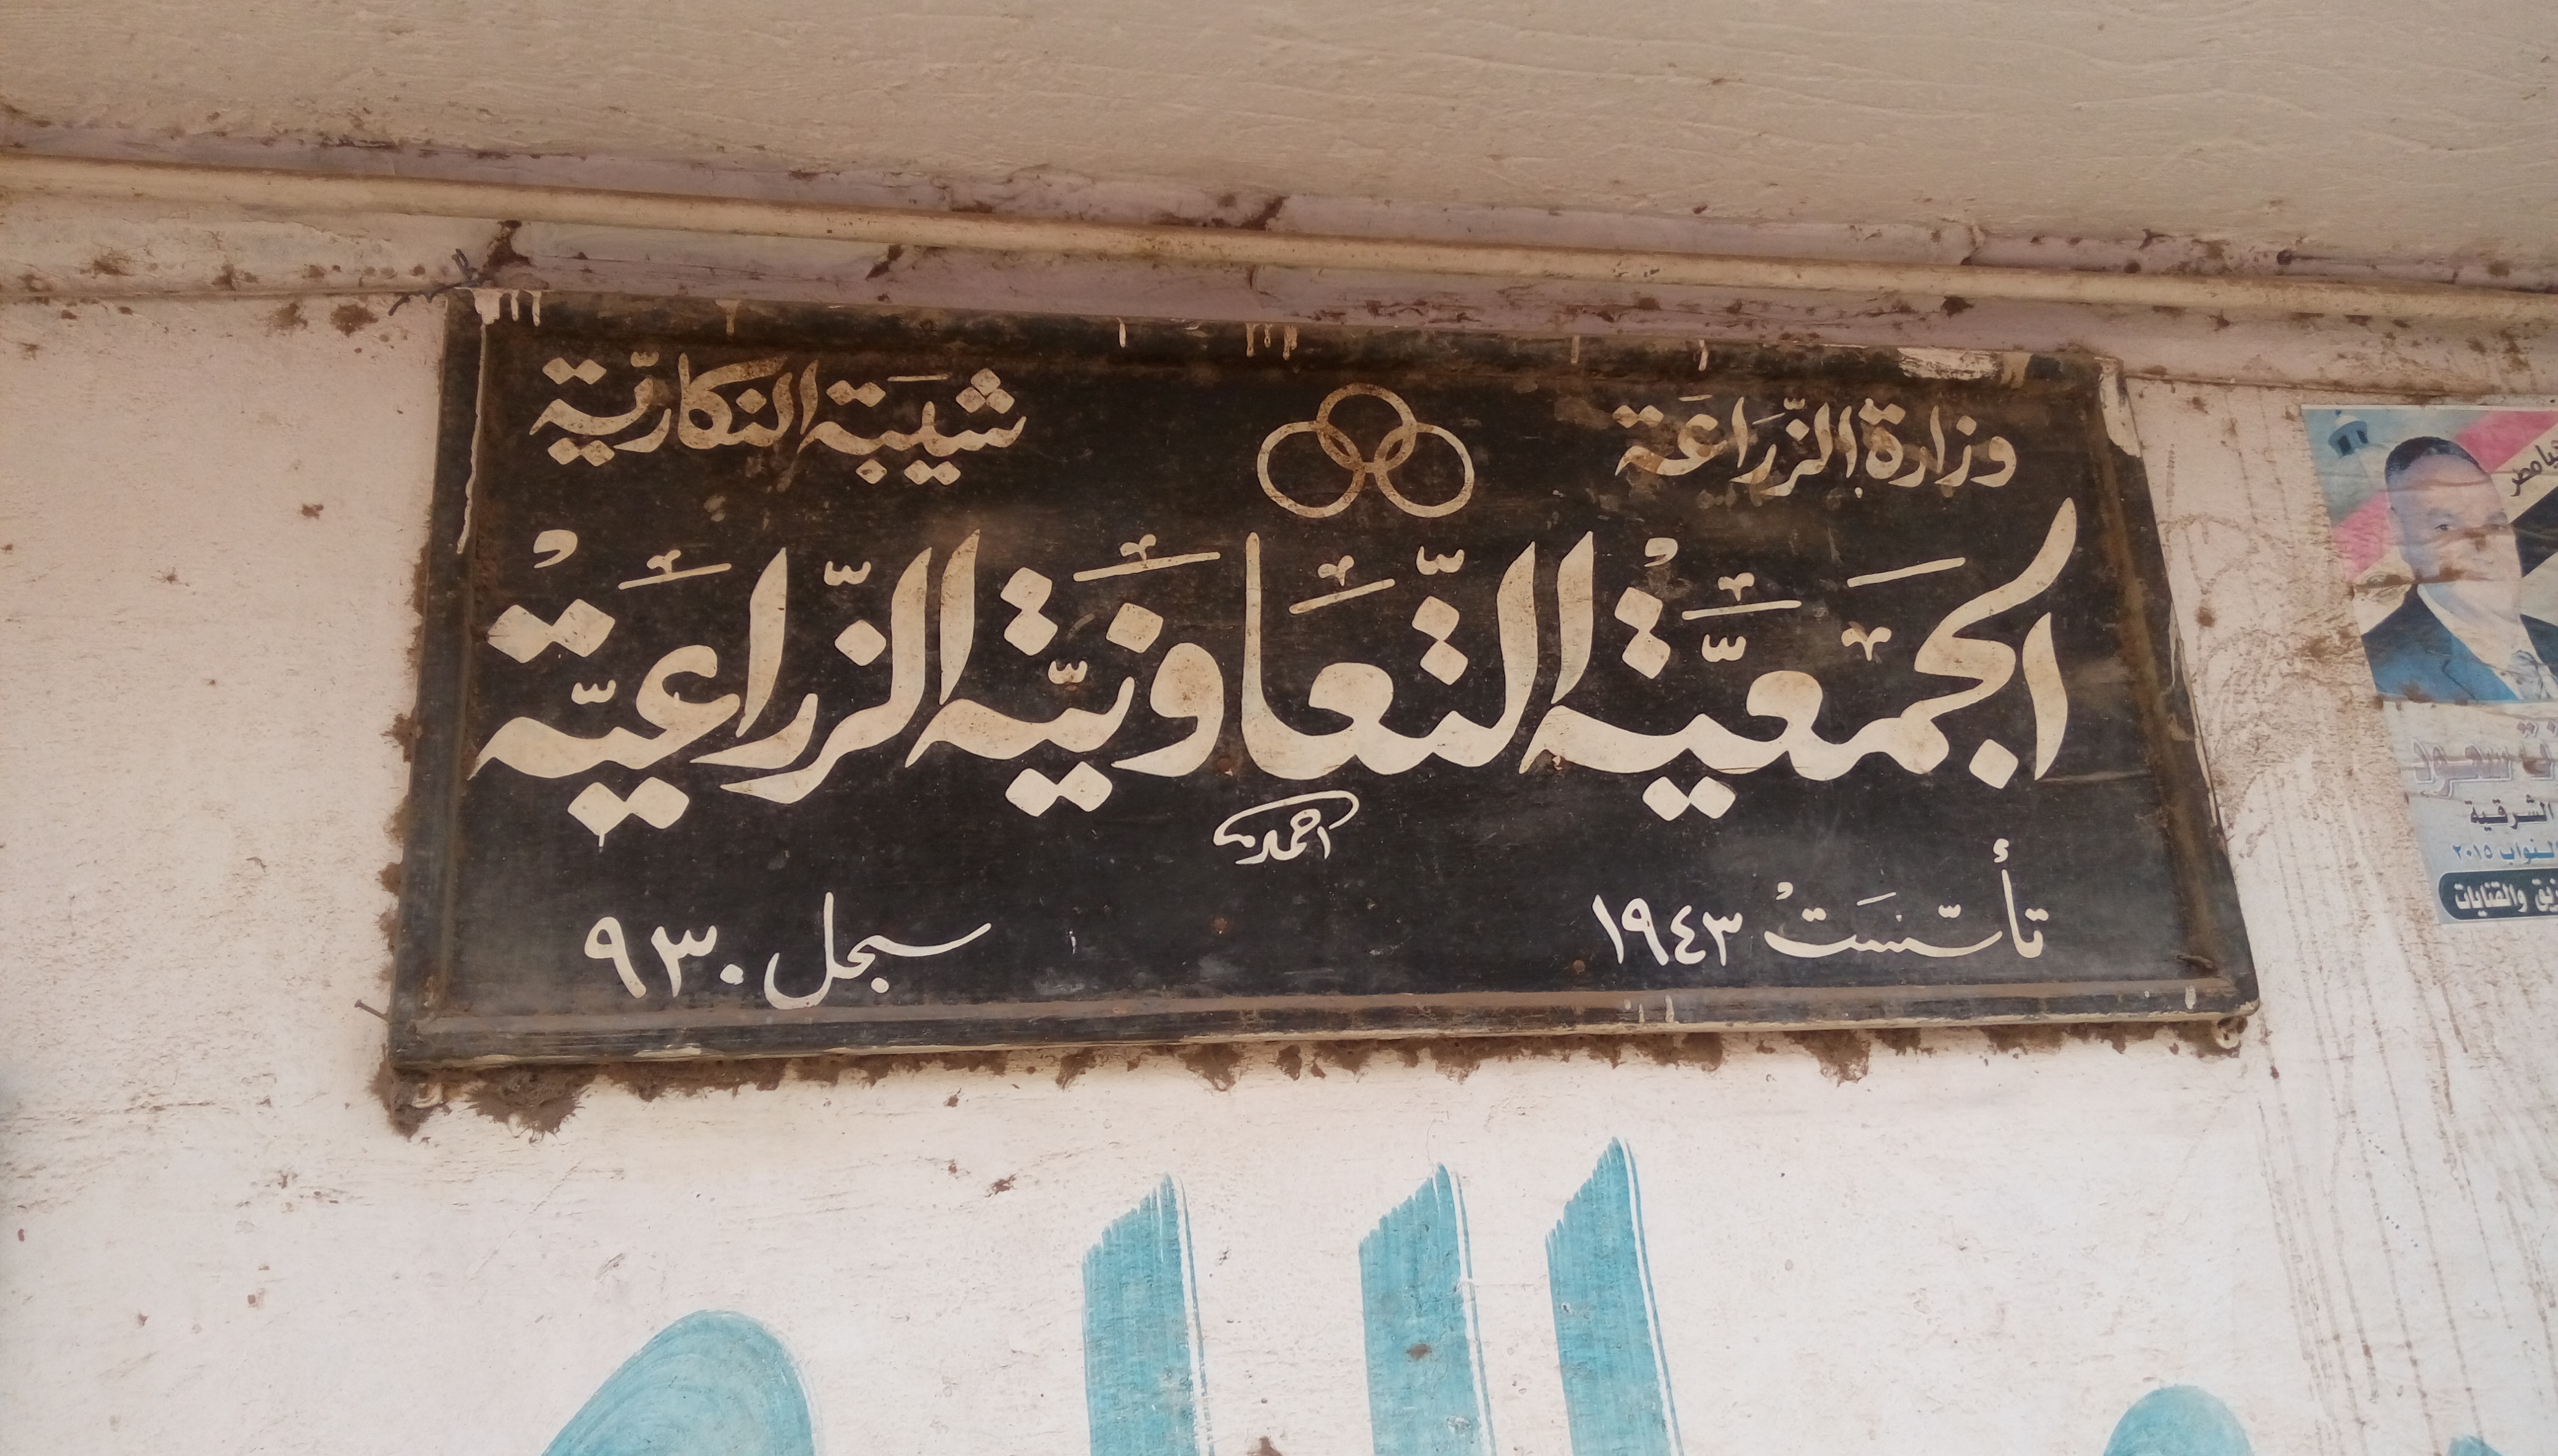 وزارة الزراعة
شيبة النكارية
الجمعية التعاونية الزراعية
احمد
تأسست ١٩٤٣
سجل ٩٣٠
تحيا مصر
الشرقية
النواب ٢٠١٥
والقنايات